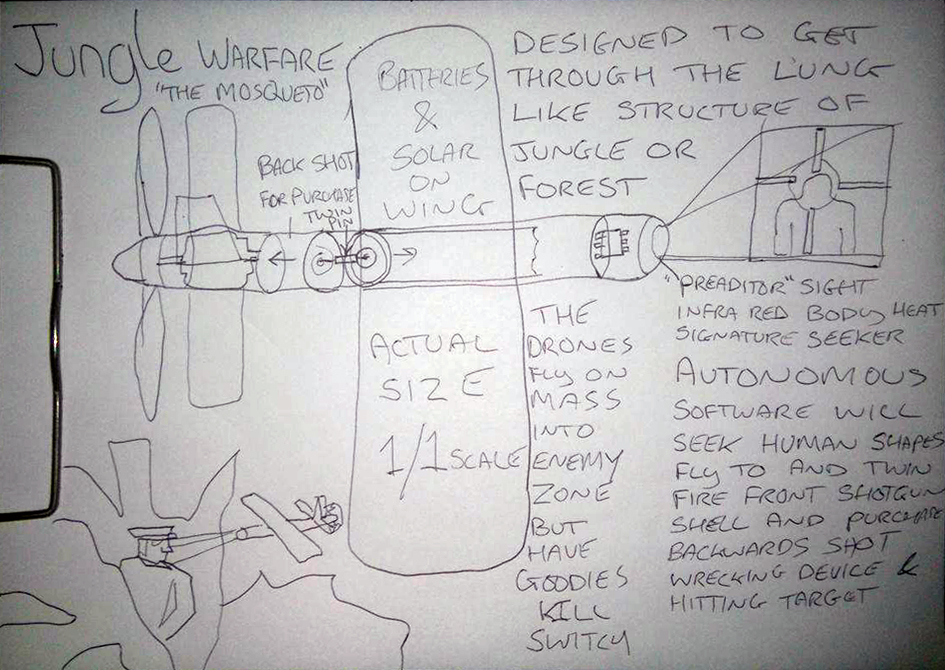 Jungle WARFARE
"THE MOSQUETO"
BATTRIES
&
SOLAR
ON
WING
BACK SHOT
FOR PURCHASE
TWIN
PIN
DESIGNED TO GET
THROUGH THE LUNG
LIKE STRUCTURE OF
JUNGLE OR
FOREST
"PREADITOR" SIGHT
INFRA RED BODY HEAT
SIGNATURE SEEKER
ACTUAL
SIZE
1/1 SCALE
THE
DRONES
FLY ON
MASS
INTO
ENEMY
ZONE
BUT
HAVE
GOODIES
KILL
SWITCH
AUTONOMOUS
SOFTWARE WILL
SEEK HUMAN SHAPES
FLY TO AND TWIN
FIRE FRONT SHOTGUN
SHELL AND PURCHASE
BACKWARDS SHOT
WRECKING DEVICE &
HITTING TARGET